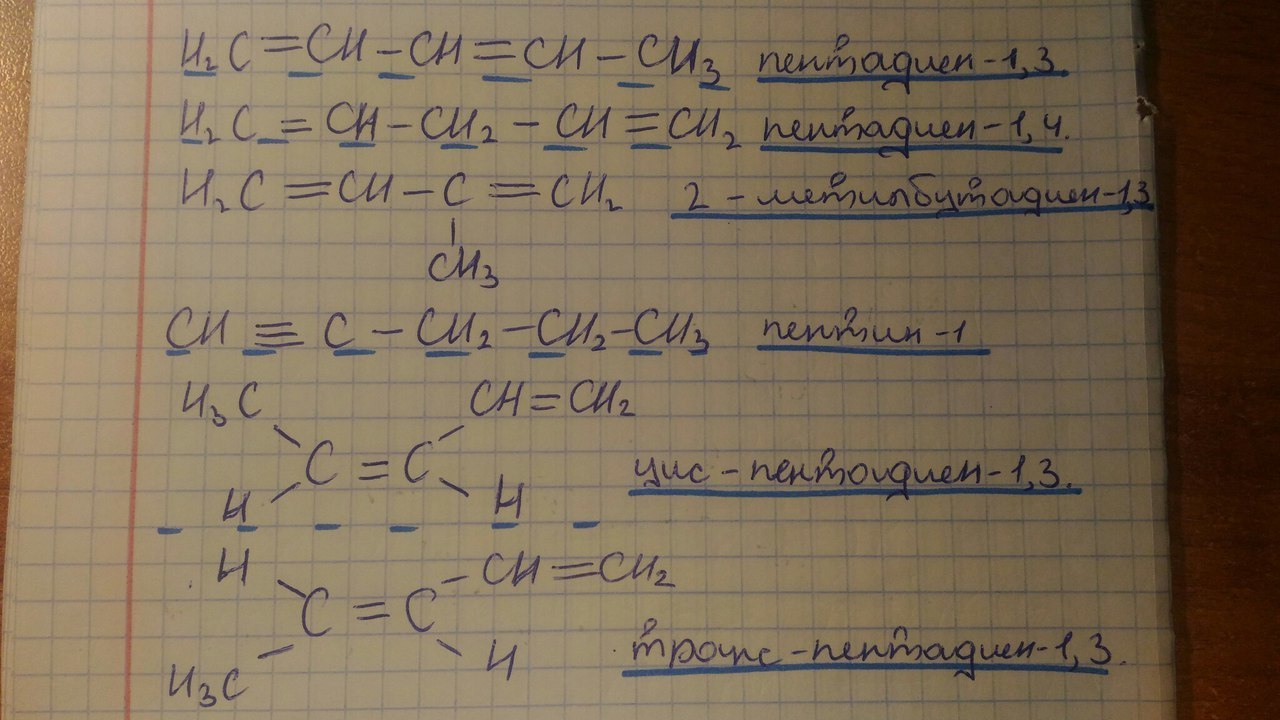 H₂C=CH–CH=CH–CH₃ пентадиен-1,3.
H₂C=CH–CH₂–CH=CH₂ пентадиен-1,4.
H₂C=CH–C=CH₂ 2-метилбутадиен-1,3
CH₃
CH≡C–CH₂–CH₂–CH₃ пентин-1
H₃C CH=CH₂
C=C цис-пентадиен-1,3.
H H
H CH=CH₂
C=C
H₃C H транс-пентадиен-1,3.